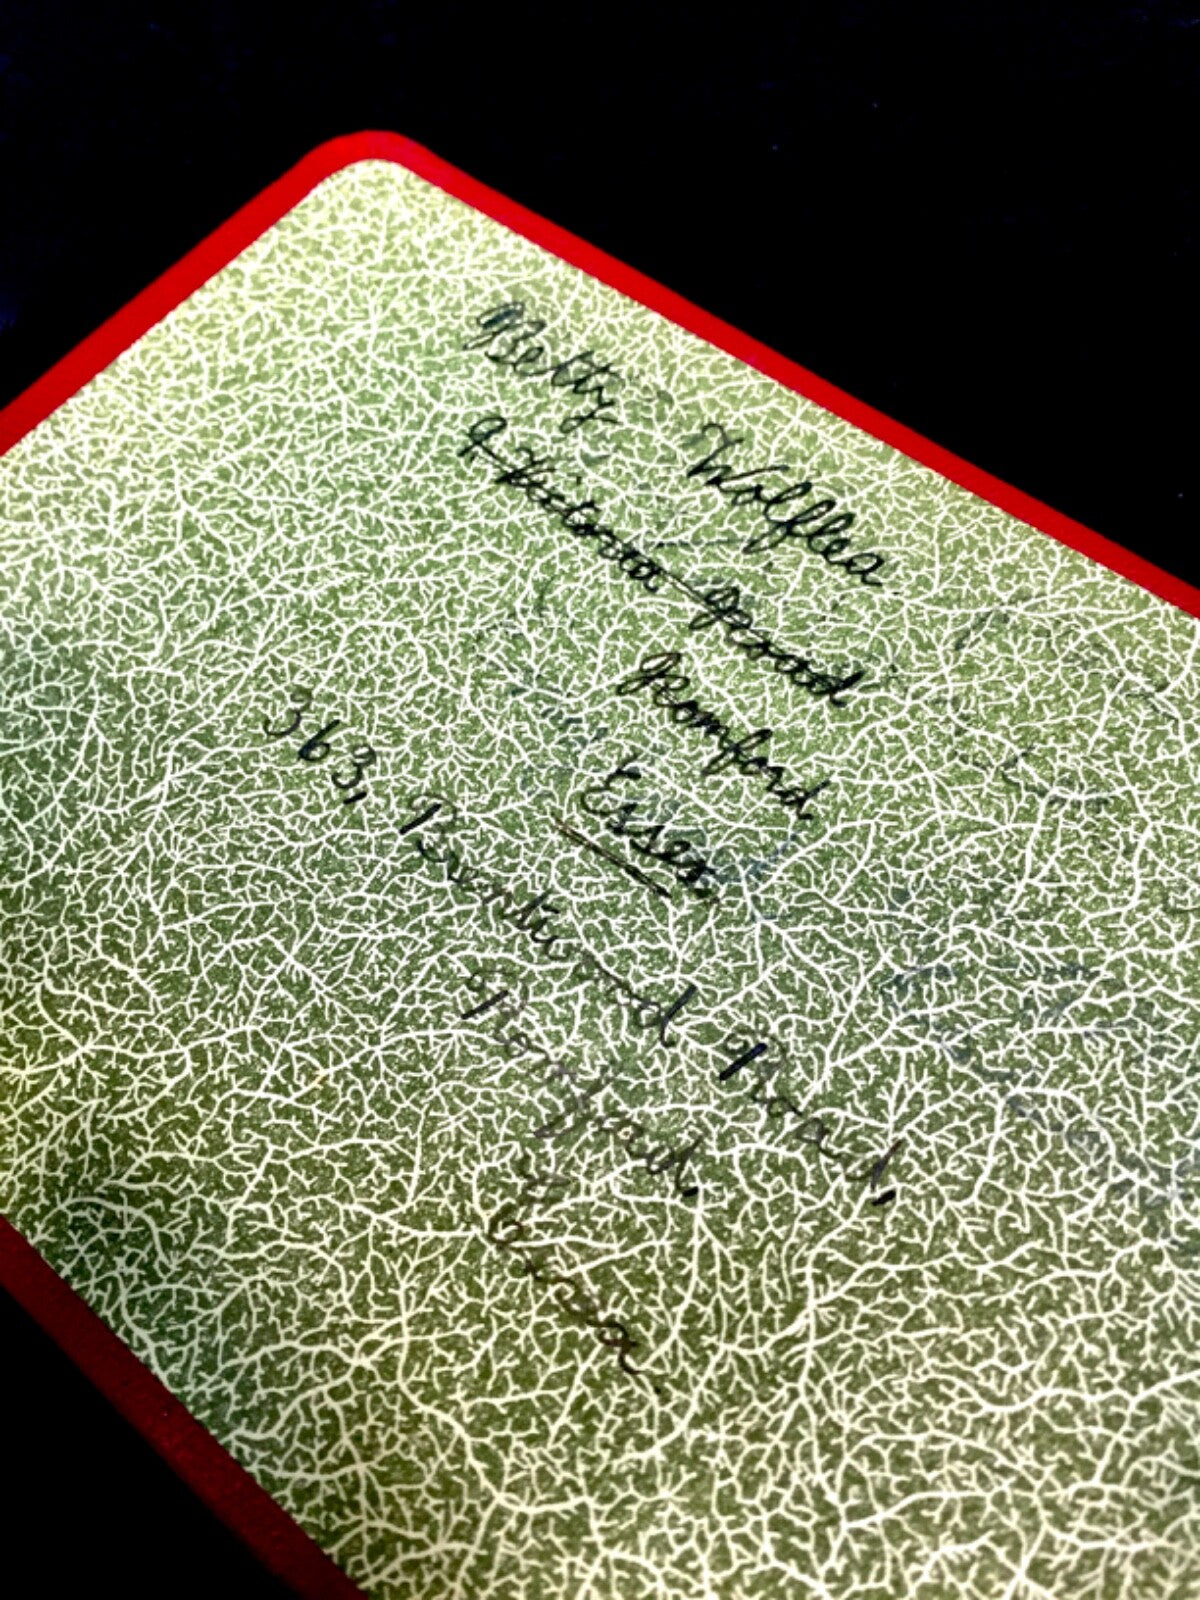 Betty Wolflea
9 Victoria Road
Romford,
Essex.
363, Brentwood Road,
Romford.